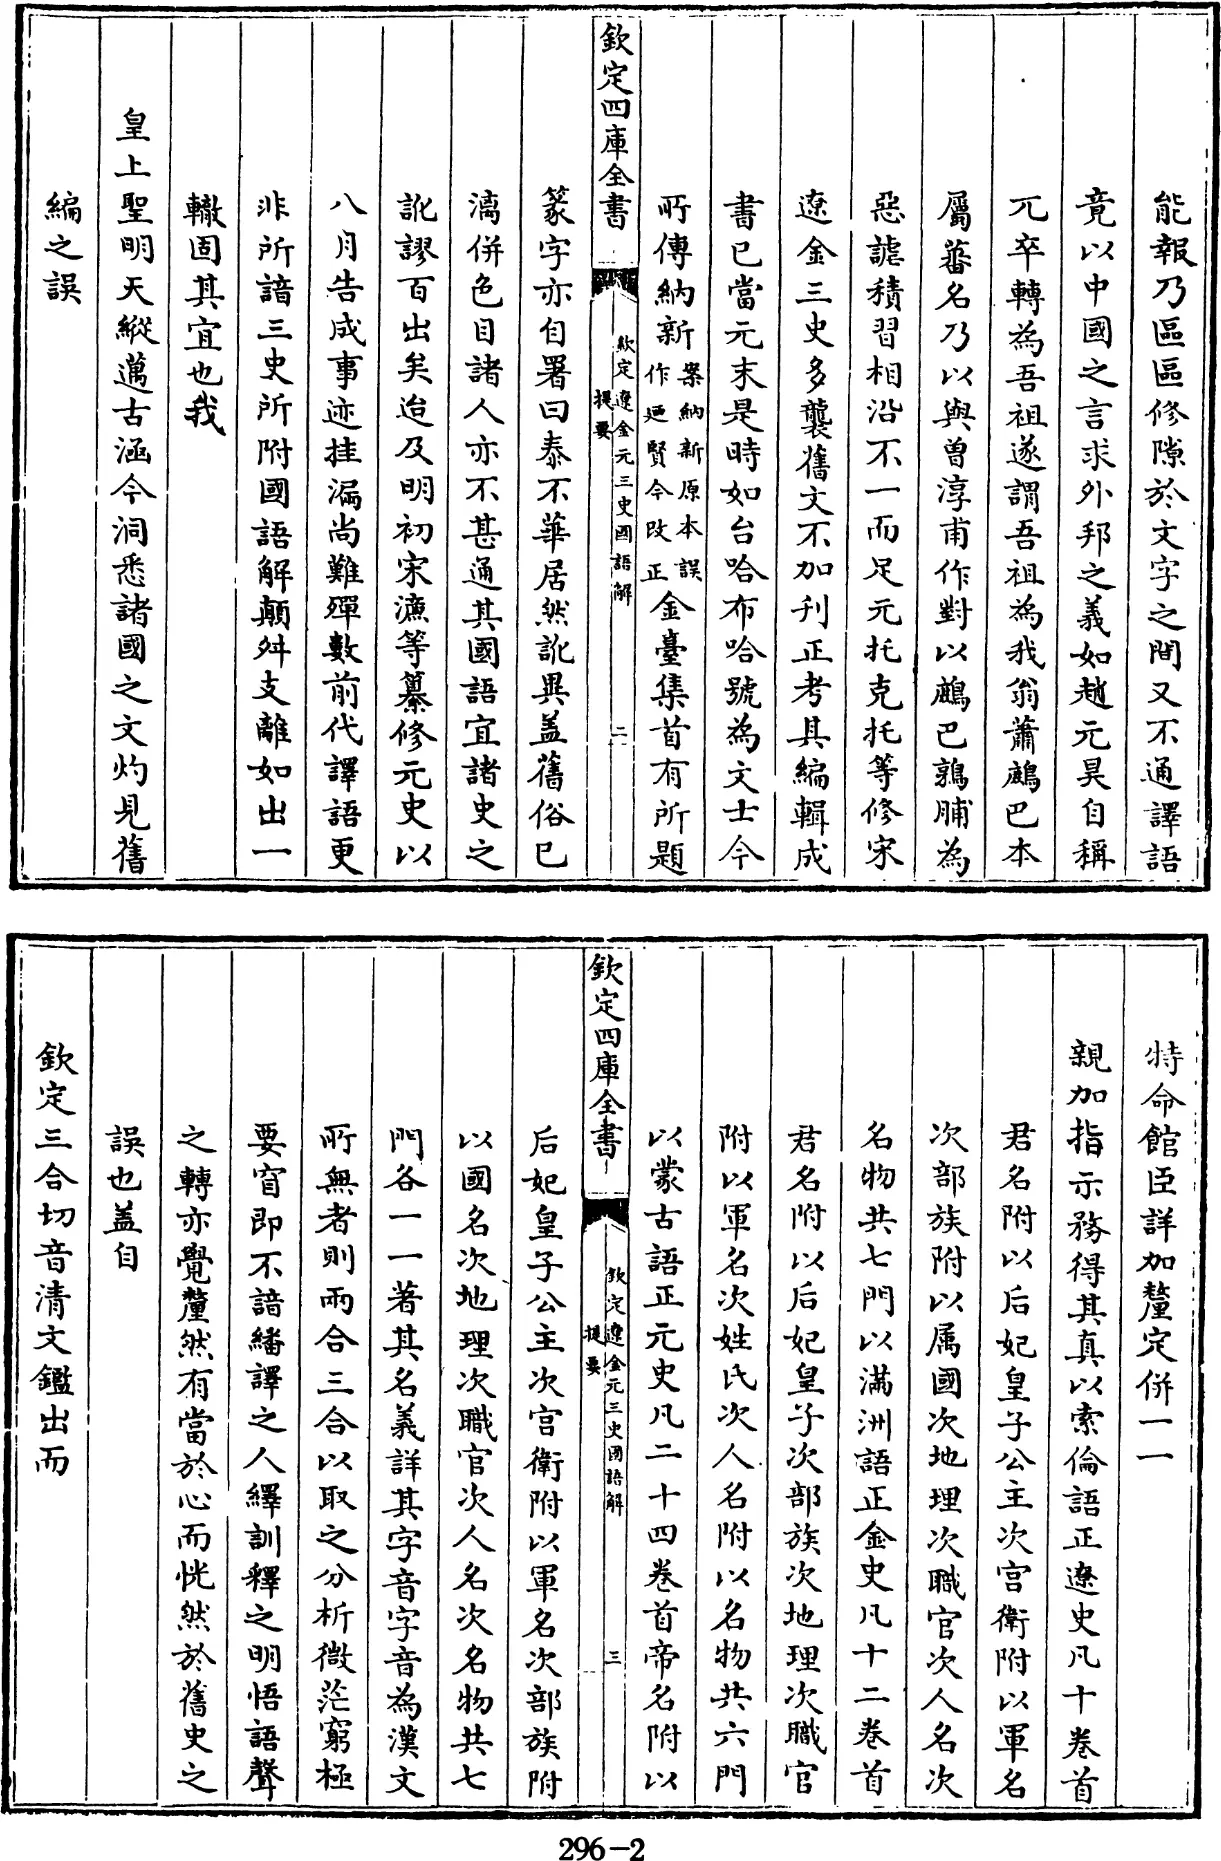 能報乃區區修隙於文字之間又不通譯語
竟以中國之言求外邦之義如趙元昊自稱
兀卒轉為吾祖遂謂吾祖為我翁蕭鷓巴本
屬蕃名乃以與曾淳甫作對以鷓巴鶉脯為
惡謔積習相沿不一而足元托克托等修宋
遼金三史多襲舊文不加刊正考其編輯成
書已當元末是時如台哈布哈號為文士今
所傳納新案納新原本誤作廼賢今改正金臺集首有所題
欽定四庫全書
欽定遼金元三史國語解
提要
二
篆字亦自署曰泰不華居然訛異盖舊俗已
漓併色目諸人亦不甚通其國語宜諸史之
訛謬百出矣迨及明初宋濂等纂修元史以
八月告成事迹挂漏尚難殫數前代譯語更
非所諳三史所附國語解顛舛支離如出一
轍固其宜也我
皇上聖明天縱邁古涵今洞悉諸國之文灼見舊
編之誤
特命館臣詳加釐定併一一
親加指示務得其真以索倫語正遼史凡十卷首
君名附以后妃皇子公主次宫衛附以軍名
次部族附以属國次地理次職官次人名次
名物共七門以滿洲語正金史凡十二卷首
君名附以后妃皇子次部族次地理次職官
附以軍名次姓氏次人名附以名物共六門
以蒙古語正元史凡二十四卷首帝名附以
欽定四庫全書
欽定遼金元三史國語解
提要
三
后妃皇子公主次宫衛附以軍名次部族附
以國名次地理次職官次人名次名物共七
門各一一著其名義詳其字音字音為漢文
所無者則兩合三合以取之分析微茫窮極
要窅即不諳繙譯之人繹訓釋之明悟語聲
之轉亦覺釐然有當於心而恍然於舊史之
誤也盖自
欽定三合切音清文鑑出而
296-2